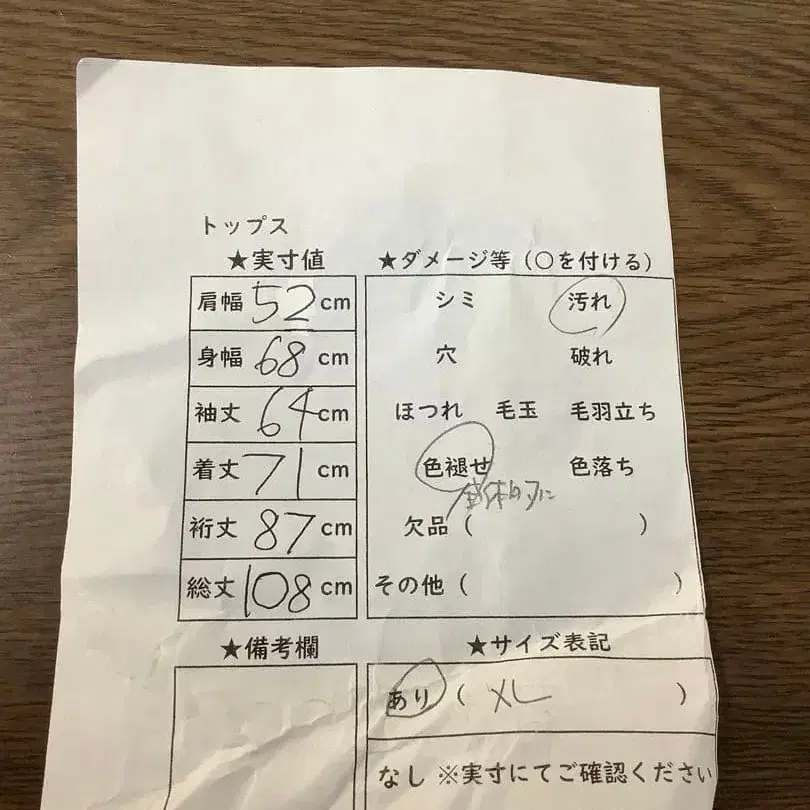 トップス
★実寸値
肩幅 52 cm
身幅 68 cm
袖丈 64 cm
着丈 71 cm
裄丈 87 cm
総丈 108 cm
★ダメージ等（○を付ける）
シミ 汚れ
穴 破れ
ほつれ 毛玉 毛羽立ち
色褪せ 色落ち
全体的に
欠品（ ）
その他（ ）
★備考欄
★サイズ表記
あり（ XL ）
なし ※実寸にてご確認ください